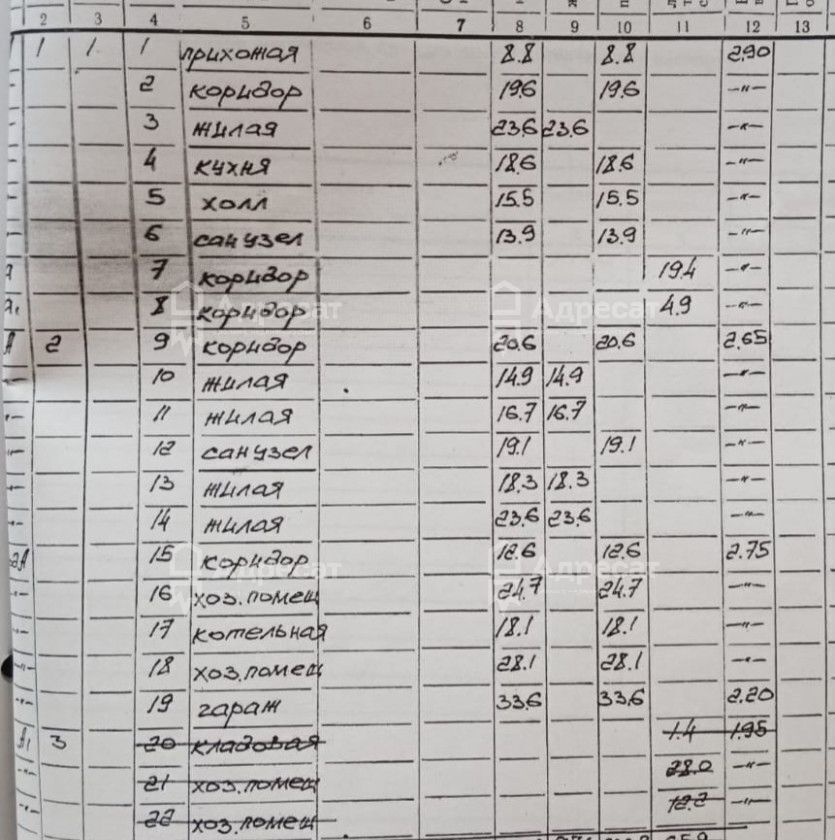 2 3 4 5 6 7 8 9 10 11 12 13
1 1 1 прихожая 8.8 8.8 2.90
2 коридор 19.6 19.6 -"-
3 жилая 23.6 23.6 -"-
4 кухня 18.6 18.6 -"-
5 холл 15.5 15.5 -"-
6 санузел 13.9 13.9 -"-
7 коридор 19.4 -"-
8 коридор 4.9 -"-
Адресат Адресат
А 2 9 коридор 20.6 20.6 2.65
-"- 10 жилая 14.9 14.9 -"-
-"- 11 жилая 16.7 16.7 -"-
-"- 12 санузел 19.1 19.1 -"-
-"- 13 жилая 18.3 18.3 -"-
-"- 14 жилая 23.6 23.6 -"-
15 коридор 12.6 12.6 2.75
Адресат Адресат
-"- 16 хоз.помещ 24.7 24.7 -"-
-"- 17 котельная 18.1 18.1 -"-
-"- 18 хоз.помещ 28.1 28.1 -"-
-"- 19 гараж 33.6 33.6 2.20
А1 3 20 кладовая 1.4 1.95
-"- 21 хоз.помещ 28.0 -"-
-"- 22 хоз.помещ 12.2 -"-